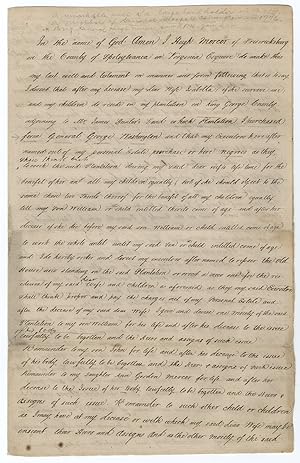 In the name of God Amen I Hugh Mercer of Fredericksburg
in the County of Spotsylvania in Virginia Esquire do make this
my last will and testament in manner and form following that is to say
I direct that after my decease my dear Wife Isabella if she survives me
and my children do reside on my Plantation in King George County
adjoining to Mr James Hunter's Land which Plantation I purchased
from General George Washington and that my Executors hereafter
named out of my personal Estate purchase so many Negroes as they
to work the said Plantation during my said dear wife's life time for the
benefit of her and all my children equally; but if she should object to the
same then two thirds thereof for the benefit of all my children equally
till my Son William or Child entitled thereto come of age and after her
decease if she die before my said son William or Child shall come of age
to work the whole until my said Son or Child entitled come of age
and I do hereby order and direct my executors after named to repair the Old
House now standing on the said Plantation or erect a new one for the
of my said Wife and children as aforesaid, as they my said Executors
shall think proper and pay the charges out of my Personal Estate and
after the decease of my said dear Wife I give and devise one moiety of the said
Plantation to my son William for his life and after his decease to the issue
lawfully to be begotten and the heirs and assigns of such issue
Remainder to my Son John for life and after his decease to the issue
of his body lawfully to be begotten and the Heirs & Assigns of such issue
Remainder to my daughter Ann Gordon Mercer for life and after her
decease to the Issue of her body lawfully to be begotten and the Heirs &
Assigns of such issue. Remainder to such other child or children
as I may have at my decease or with which my said dear Wife may be
enceint their Heirs and Assigns and as to the other moiety of the said